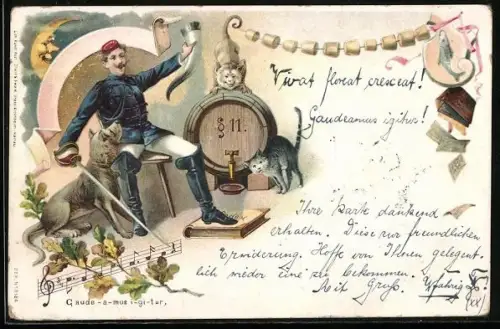 Vivat floreat crescat!
Gaudeamus igitur!
§ 11.
Ihre Karte dankend
erhalten. Diese zur freundlichen
Erwiderung. Hoffe von Ihnen gelegent-
lich wieder eine zu bekommen.
Mit Gruß.
(xx)
Gaude-a-mus i-gi-tur,